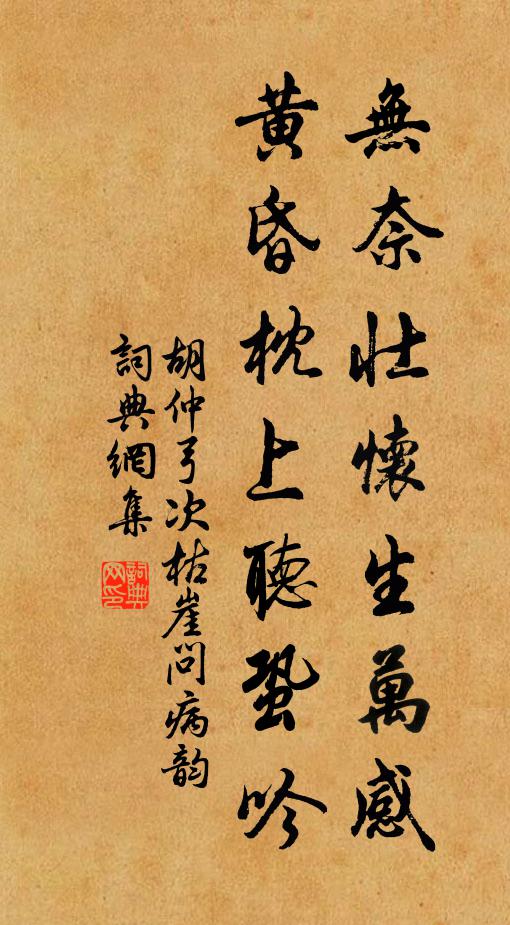 無奈壯懷生萬感
黃昏枕上聽蛩吟
胡仲弓次枯崖問病韵
詞典網集
詞典
网印